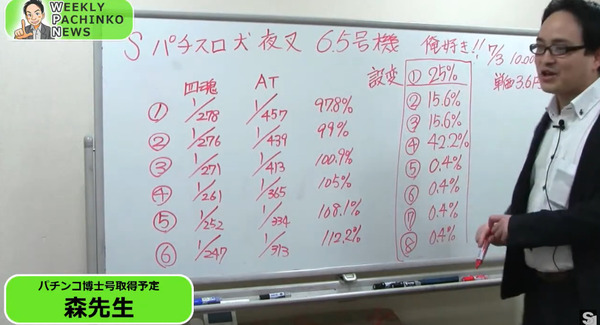 WEEKLY
PACHINKO
NEWS
S パチスロ犬夜叉 6.5号機 俺好き!! 7/3 10,00
単価3.6円
四魂 AT 設変
① 1/278 1/457 97.8%
② 1/276 1/439 99%
③ 1/271 1/413 100.9%
④ 1/261 1/365 105%
⑤ 1/252 1/334 108.1%
⑥ 1/247 1/313 112.2%
① 25%
② 15.6%
③ 15.6%
④ 42.2%
⑤ 0.4%
⑥ 0.4%
⑦ 0.4%
⑧ 0.4%
パチンコ博士号取得予定
森先生